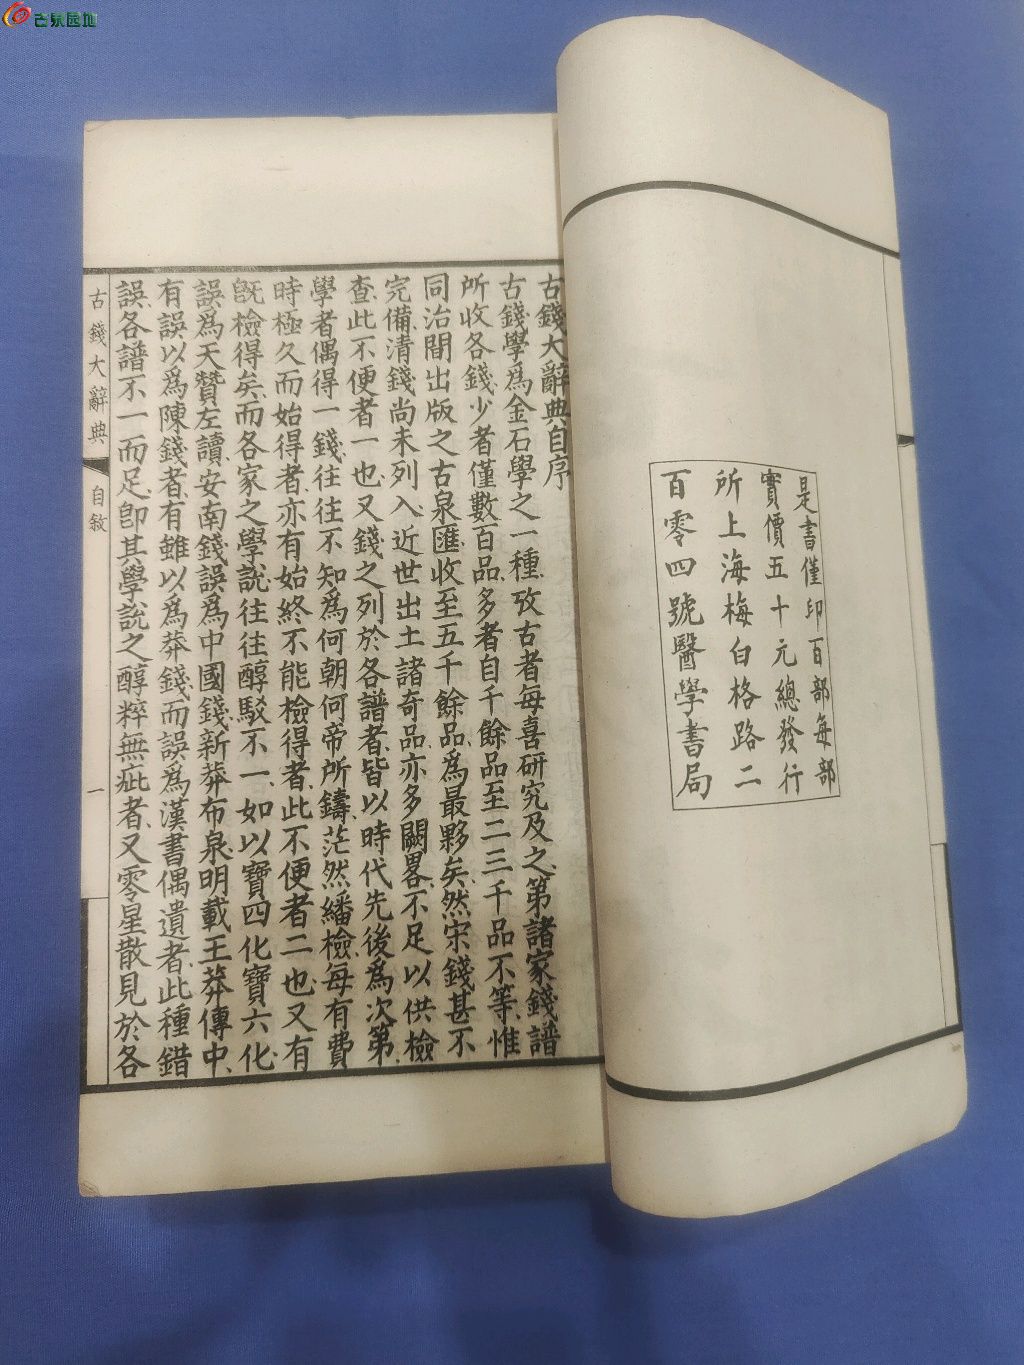 古泉园地
是書僅印百部每部
實價五十元總發行
所上海梅白格路二
百零四號醫學書局
古錢大辭典自序
古錢學爲金石學之一種攷古者每喜研究及之第諸家錢譜
所收各錢少者僅數百品多者自千餘品至二三千品不等惟
同治間出版之古泉匯收至五千餘品爲最夥矣然宋錢甚不
完備清錢尚未列入近世出土諸奇品亦多闕畧不足以供檢
查此不便者一也又錢之列於各譜者皆以時代先後爲次第
學者偶得一錢往往不知爲何朝何帝所鑄茫然繙檢每有費
時極久而始得者亦有始終不能檢得者此不便者二也又有
旣檢得矣而各家之學說往往醇駁不一如以寶四化寶六化
誤爲天贊左讀安南錢誤爲中國錢新莽布泉明載王莽傳中
有誤以爲陳錢者有雖以爲莽錢而誤爲漢書偶遺者此種錯
誤各譜不一而足卽其學說之醇粹無疵者又零星散見於各
古錢大辭典
自敘
一